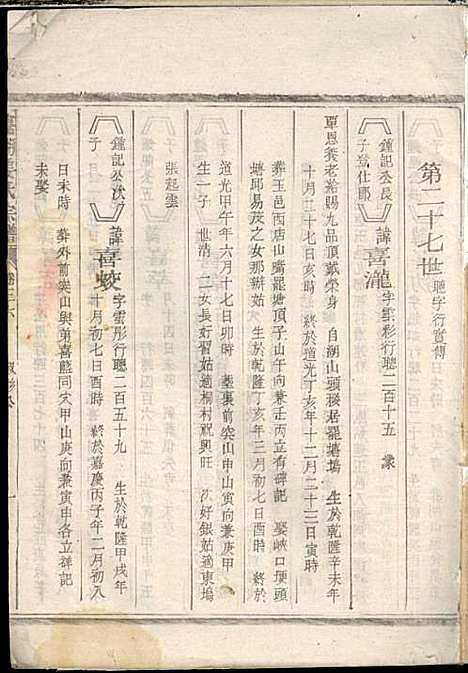 第二十七世 聰字行實傳
鍾記公長子登仕郎 諱喜瀧 字雲彩行聰二百十五 蒙
覃恩養老給賜九品頂戴榮身 自湖山頭移居罷塘塢 生於乾隆辛未年
十月三十七日亥時 終於道光丁亥年十二月二十三日寅時
葬玉邑西店山嘴罷塘頂子山午向兼壬丙立有碑記 娶峽口埂頭
塘邱易茂之女那辦姑 生於乾隆丁亥年三月初七日酉時 終於
道光甲午年六月十七日卯時 墓裏前突山申山寅向兼庚甲
生一子 世清 二女長好習姑適桐村祝興旺 次好銀姑適東塢
張起雲
鍾記公次子 諱喜蛟 字雲彤行聰二百五十九 生於乾隆甲戌年
十月初七日酉時 終於嘉慶丙子年二月初八
日未時 葬外前突山與弟喜陞同穴甲山庚向兼寅申各立碑記
未娶
宗譜
卷之六